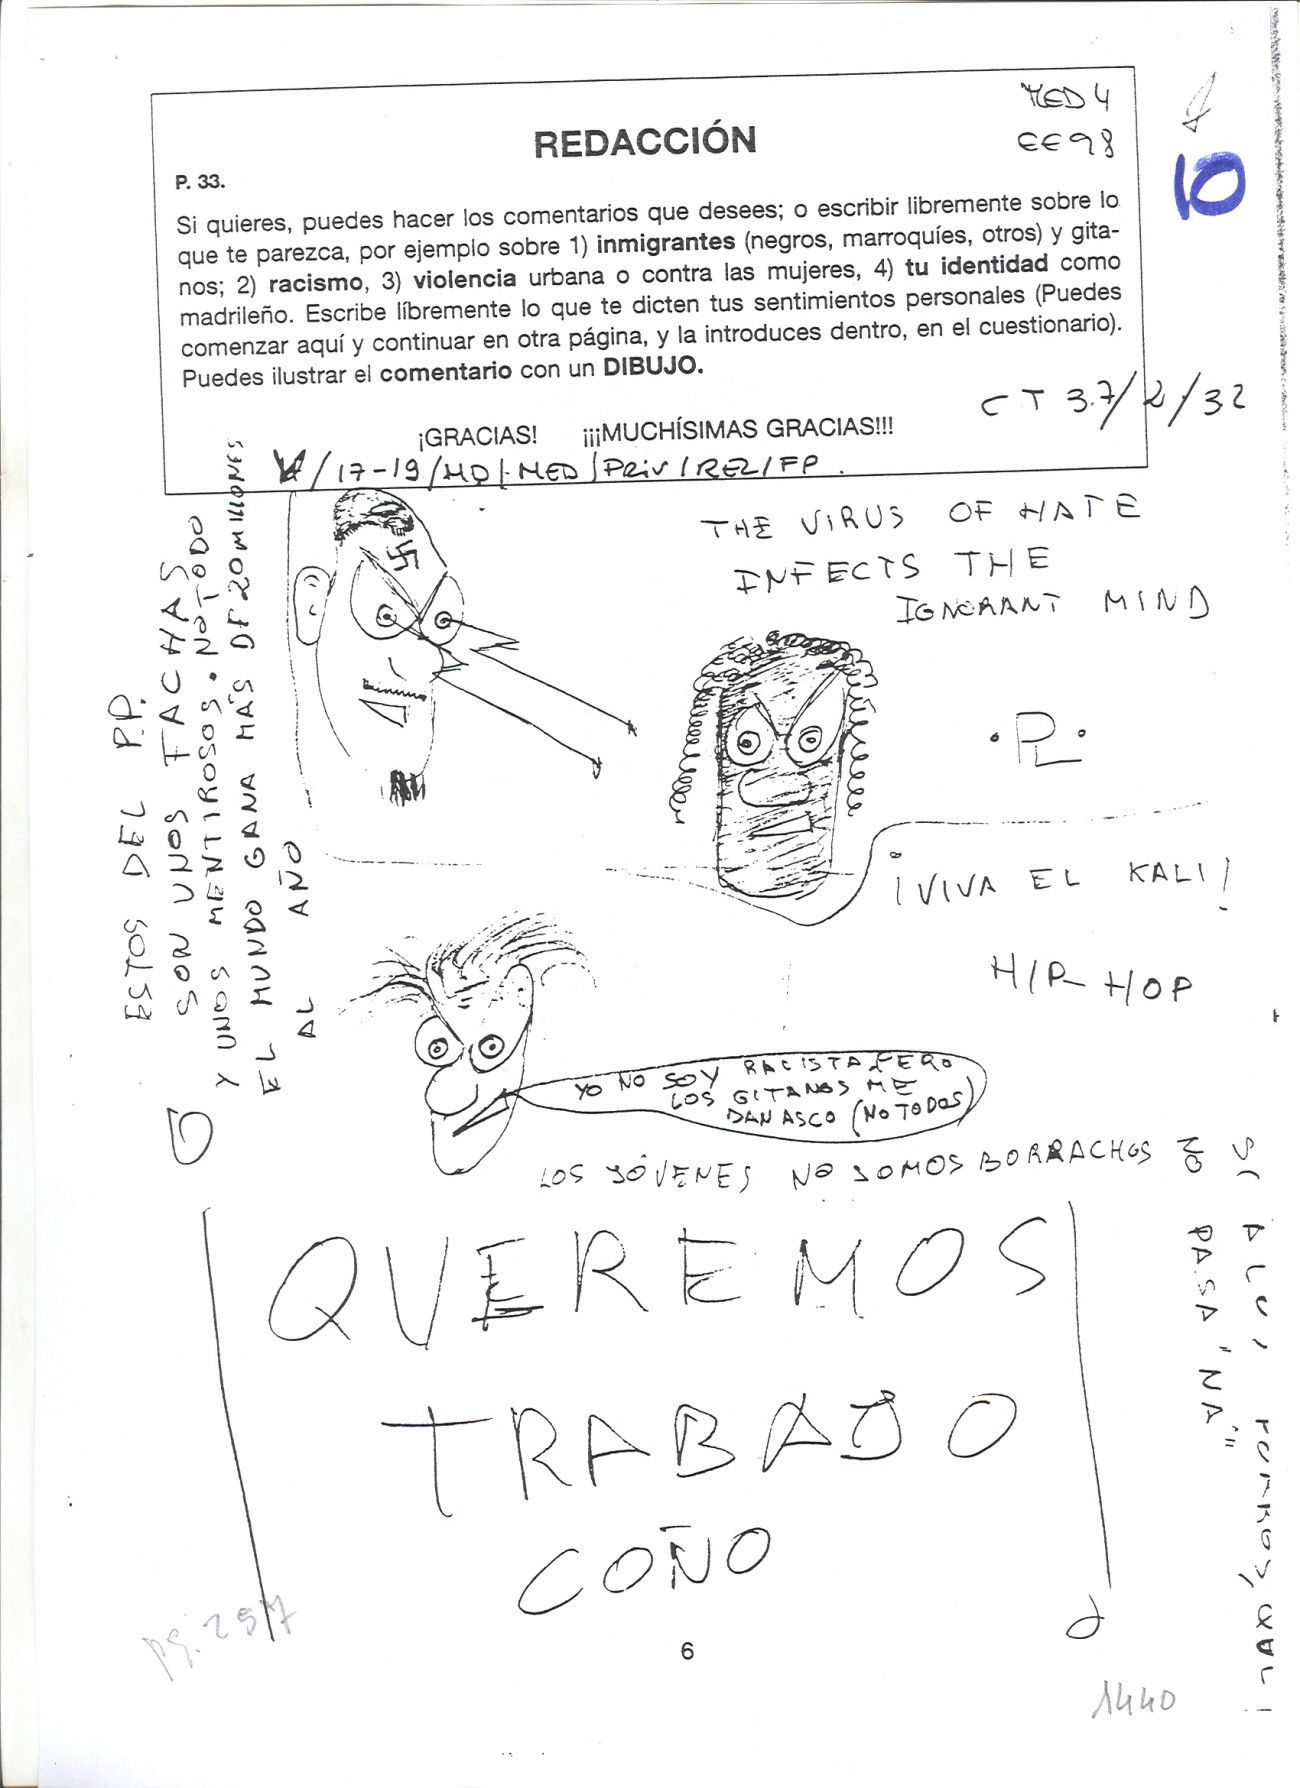 MED 4
EE98
10
REDACCIÓN
P. 33.
Si quieres, puedes hacer los comentarios que desees; o escribir libremente sobre lo
que te parezca, por ejemplo sobre 1) inmigrantes (negros, marroquíes, otros) y gita-
nos; 2) racismo, 3) violencia urbana o contra las mujeres, 4) tu identidad como
madrileño. Escribe líbremente lo que te dicten tus sentimientos personales (Puedes
comenzar aquí y continuar en otra página, y la introduces dentro, en el cuestionario).
Puedes ilustrar el comentario con un DIBUJO.
CT 3.7/2/32
¡GRACIAS! ¡¡¡MUCHÍSIMAS GRACIAS!!!
V/17-19/MD/MED/PRiV/REL/FP.
THE VIRUS OF HATE
INFECTS THE
IGNORANT MIND
ESTOS DEL P.P.
SON UNOS FACHAS
Y UNOS MENTIROSOS. NO TODO
EL MUNDO GANA MÁS DE 20 MILLONES
AL AÑO
.PL.
¡VIVA EL KALI!
HIP-HOP
YO NO SOY RACISTA, PERO
LOS GITANOS ME
DAN ASCO (NO TODOS)
LOS JÓVENES NO SOMOS BORRACHOS
NO PASA "NA"
QUEREMOS
TRABAJO
COÑO
pg. 257
6
1440